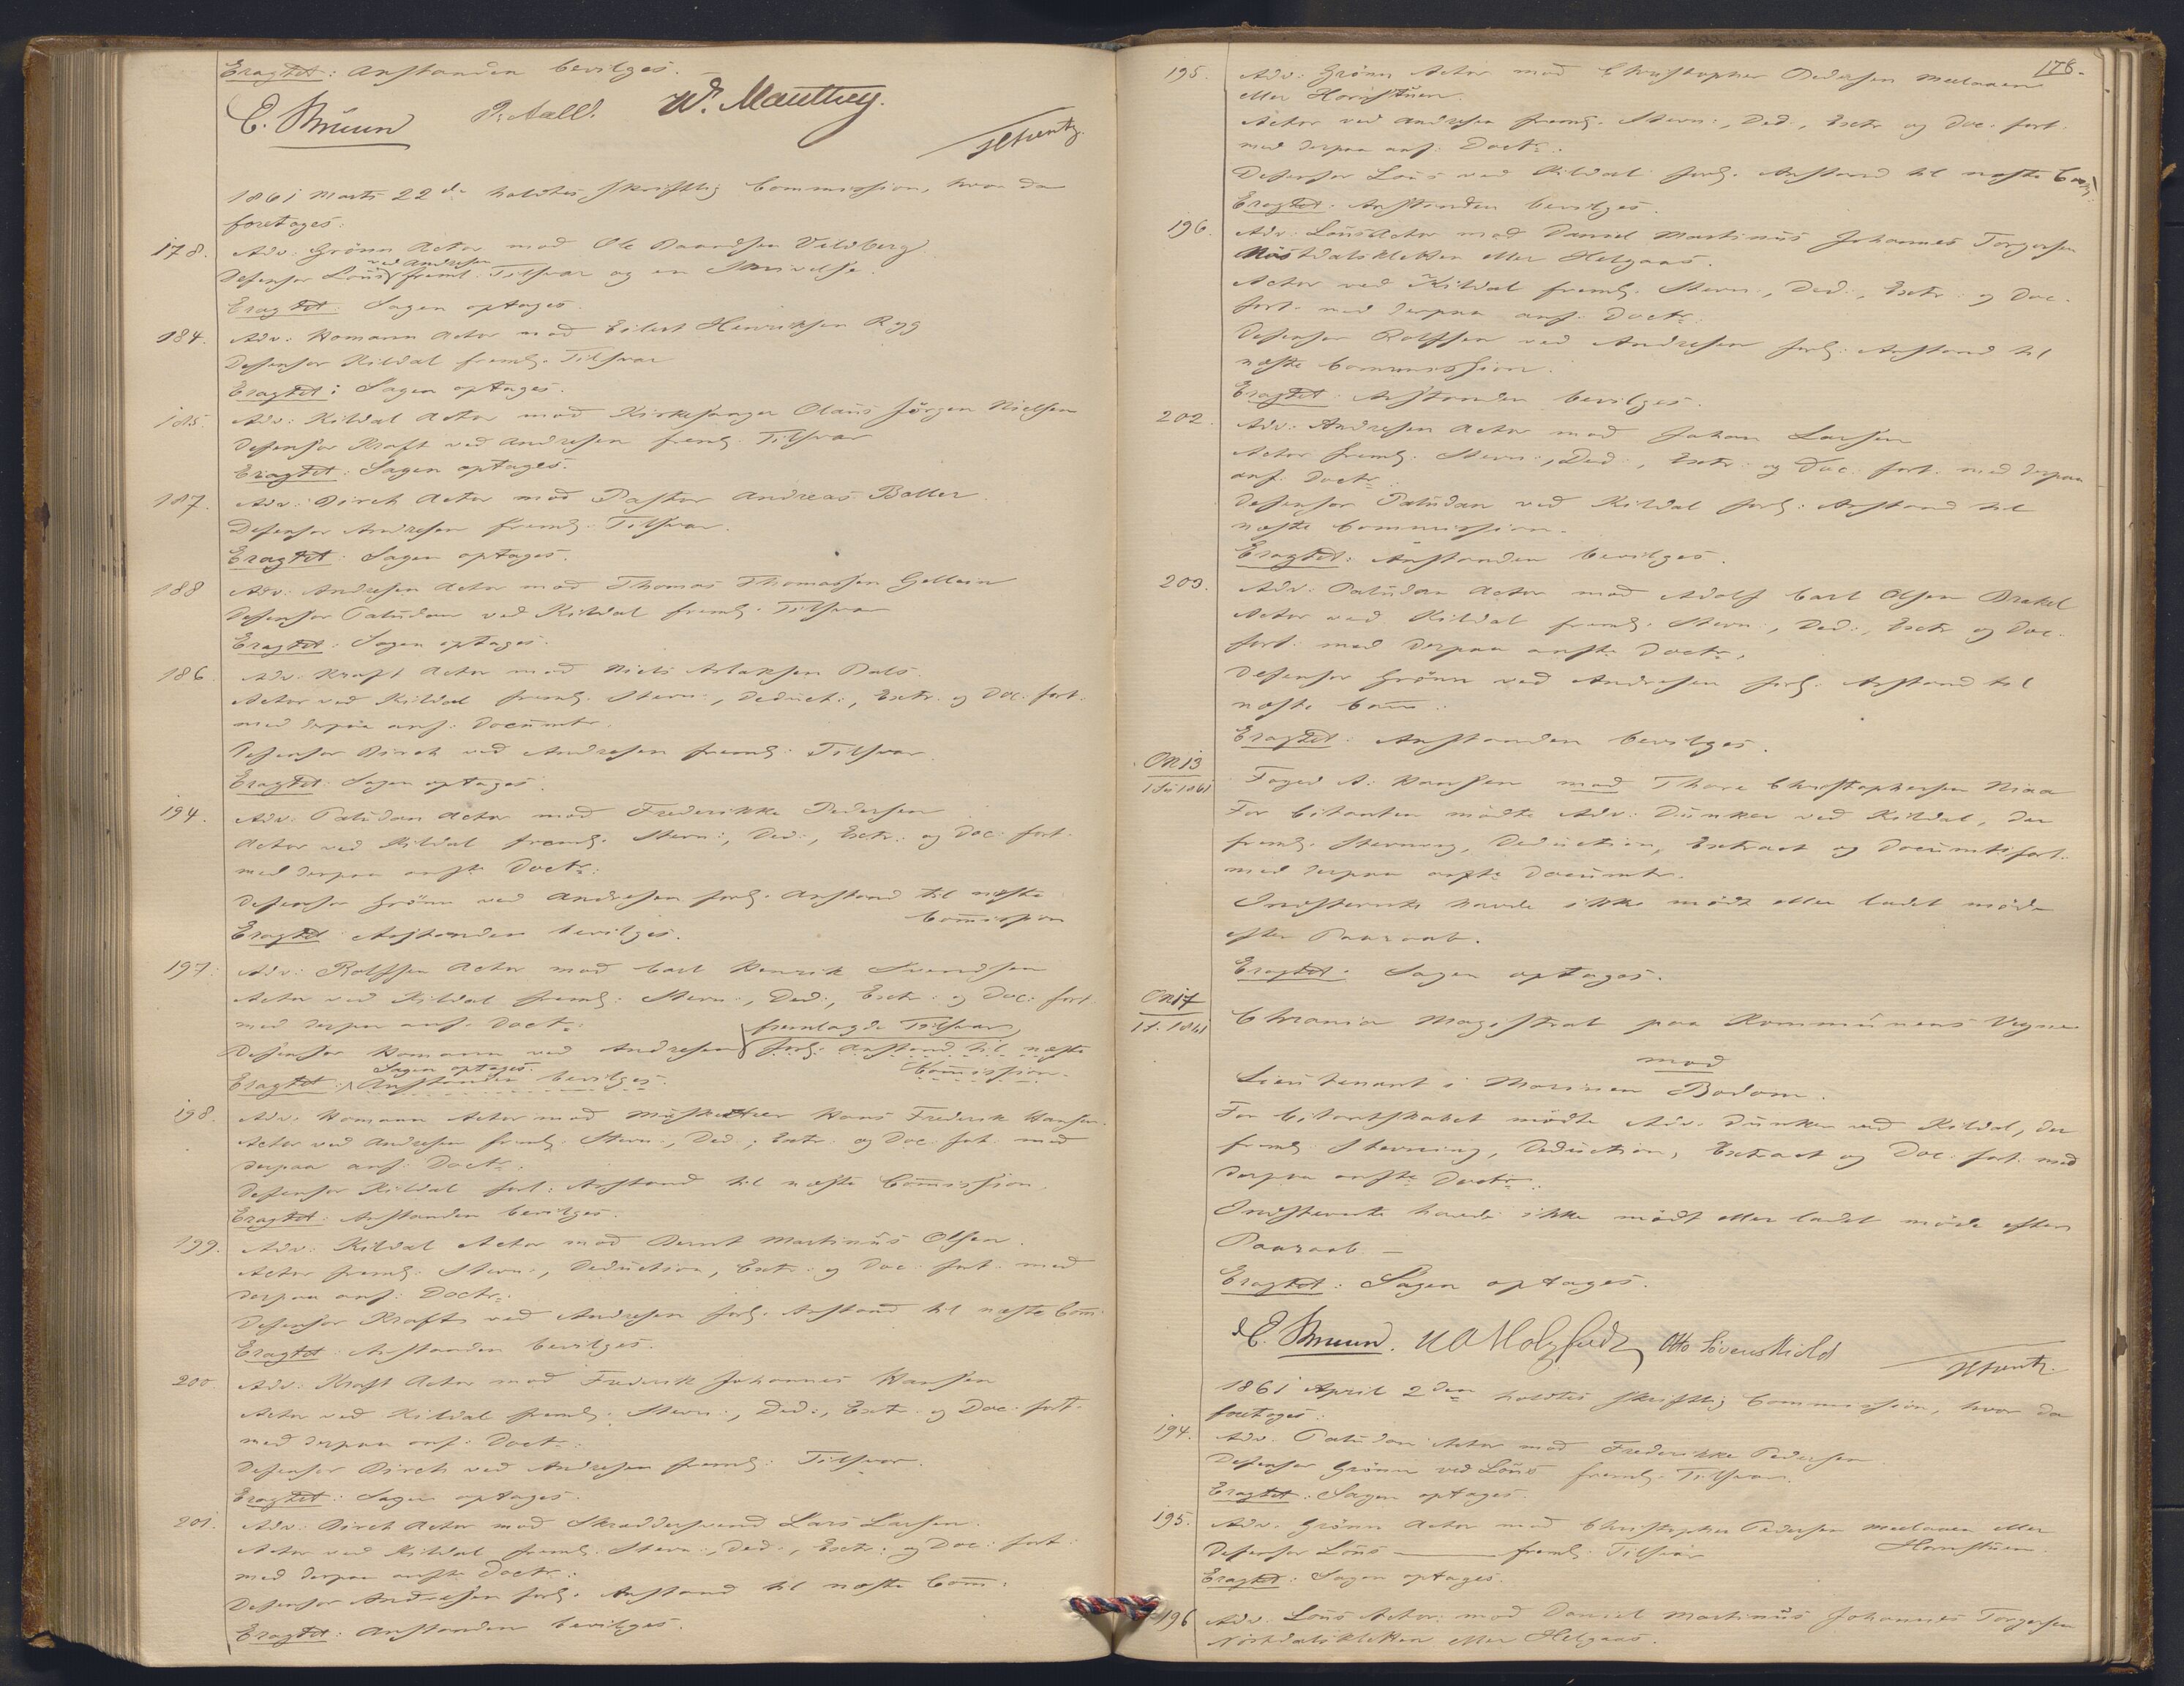 Eragtet: Anstanden bevilges.
E. Bruun P. Aall. W. Manthey.
1861 Marts 22de holdtes skriftlig Commission, hvor da
foretoges:
178. Adv: Grönn Actor mod Ole Paardsen Vildberg
ved Andresen
Defensor Lous freml: Tilsvar og en Skrivelse.
Eragtet: Sagen optages.
184. Adv: Homann Actor mod Eilert Henriksen Rygg
Defensor Kildal freml. Tilsvar
Eragtet: Sagen optages.
185. Adv: Kildal Actor mod Kirkesanger Olaus Jörgen Nielsen
Defensor Kraft ved Andresen freml. Tilsvar
Eragtet: Sagen optages.
187. Adv: Birch Actor mod Pastor Andreas Baller.
Defensor Andresen freml. Tilsvar.
Eragtet: Sagen optages.
188 Adv: Andresen Actor mod Thomas Thomassen Gellein
Defensor Paludan ved Kildal freml. Tilsvar
Eragtet: Sagen optages.
186 Adv. Kraft Actor mod Niels Aslaksen Dals.
Actor ved Kildal freml. Stevn:, Deduct:, Extr: og Doc: fort.
med derpaa anf: Documtr.
Defensor Birch ved Andresen freml: Tilsvar
Eragtet: Sagen optages.
194. Adv: Paludan Actor mod Frederikke Pedersen
Actor ved Kildal freml. Stevn:, Ded:, Extr: og Doc: fort.
med derpaa anfte Doctr:
Defensor Grönn ved Andresen forl. Anstand til næste
Commission
Eragtet Anstanden bevilges.
197: Adv: Rolfsen Actor mod Carl Henrik Svendsen
Actor ved Kildal freml: Stevn:, Ded:, Extr: og Doc: fort.
med derpaa anf. Doctr:
fremlagde Tilsvar,
Defensor Homann ved Andresen forl: Anstand til næste
Sagen optages. Commission.
Eragtet: Anstanden bevilges.
198. Adv. Homann Actor mod Musketeer Hans Frederik Hansen.
Actor ved Andresen freml. Stevn:, Ded:, Extr: og Doc: fort. med
derpaa anf: Doctr:
Defensor Kildal forl: Anstand til næste Commission.
Eragtet: Anstanden bevilges.
199. Adv: Kildal Actor mod Bernt Martinus Olsen.
Actor freml. Stevn:, Deduction, Extr: og Doc: fort. med
derpaa anf: Doctr:
Defensor Kraft ved Andresen forl. Anstand til næste Com:
Eragtet: Anstanden bevilges.
200. Adv: Kraft Actor mod Frederik Johannes Hansen
Actor ved Kildal freml: Stevn:, Ded:, Extr: og Doc: fort.
med derpaa anf: Doctr:
Defensor Birch ved Andresen freml: Tilsvar.
Eragtet: Sagen optages.
201. Adv: Birch Actor mod Skræddersvend Lars Larsen.
Actor ved Kildal freml: Stevn:, Ded:, Extr: og Doc: fort:
med derpaa anfte Doctr:
Defensor Andresen forl. Anstand til næste Com:
Eragtet: Anstanden bevilges.
178.
195. Adv: Grönn Actor mod Christopher Pedersen Meelaaen
eller Hornstuen.
Actor ved Andresen freml. Stevn:, Ded:, Extr: og Doc. fort.
med derpaa anf: Doctr:
Defensor Lous ved Kildal forl. Anstand til næste Com:
Eragtet. Anstanden bevilges.
196. Adv: Lous Actor mod Daniel Martinus Johannes Torgersen
Nöstdalskletten eller Helgaas.
Actor ved Kildal freml. Stevn:, Ded:, Extr: og Doc.
fort. med derpaa anf: Doctr:
Defensor Rolfsen ved Andresen forl: Anstand til
næste Commission.
Eragtet: Anstanden bevilges.
202. Adv: Andresen Actor mod Johan Larsen
Actor freml. Stevn:, Ded:, Extr: og Doc: fort. med derpaa
anf: Doctr:
Defensor Paludan ved Kildal forl: Anstand til
næste Commission.
Eragtet: Anstanden bevilges.
203. Adv: Paludan Actor mod Adolf Carl Olsen Brakel
Actor ved Kildal freml. Stevn:, Ded:, Extr og Doc.
fort. med derpaa anfte Doctr,
Defensor Grönn ved Andresen forl. Anstand til
næste Com:
Eragtet: Anstanden bevilges.
ON 13
1 Su 1861 Foged A. Hansen mod Thore Christophersen Nixa
For Citanten mödte Adv: Dunker ved Kildal, der
freml. Stevning, Deduction, Extract og Documtfort.
med derpaa anfte Documtr.
Indstevnte havde ikke mödt eller ladet möde
efter Paaraab.
Eragtet: Sagen optages.
ON 17
1 S. 1861 Chrania Magistrat paa Kommunens Vegne
mod
Lieutenant i Marinen Bodom.
For Citantskabet mödte Adv. Dunker ved Kildal, der
freml. Stevning, Deduction, Extract og Doc: fort. med
derpaa anfte Doctr:
Indstevnte havde ikke mödt eller ladet möde efter
Paaraab. —
Eragtet: Sagen optages.
E. Bruun. Otto Lövenskiold
1861 April 2den holdtes skriftlig Commission, hvor da
foretoges:
194. Adv. Paludan Actor mod Frederikke Pedersen
Defensor Grönn ved Lous freml. Tilsvar.
Eragtet: Sagen optages.
195. Adv. Grönn Actor mod Christopher Pedersen Meelaaen eller
Defensor Lous — freml: Tilsvar Hornstuen
Eragtet: Sagen optages.
196 Adv. Lous Actor mod Daniel Martinus Johannes Torgersen
Nöstdalskletten eller Helgaas.